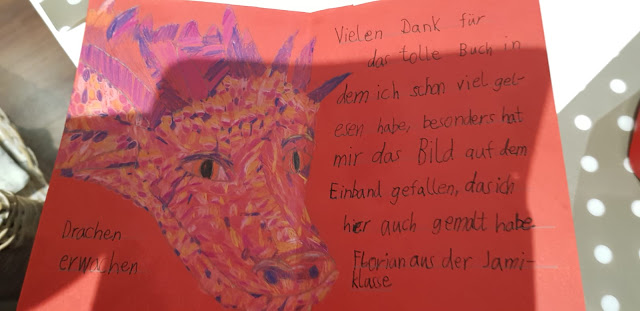 Vielen Dank für
das tolle Buch in
dem ich schon viel gel-
esen habe, besonders hat
mir das Bild auf dem
Einband gefallen, das ich
hier auch gemalt habe.
Florian aus der Jami-
klasse
Drachen
erwachen